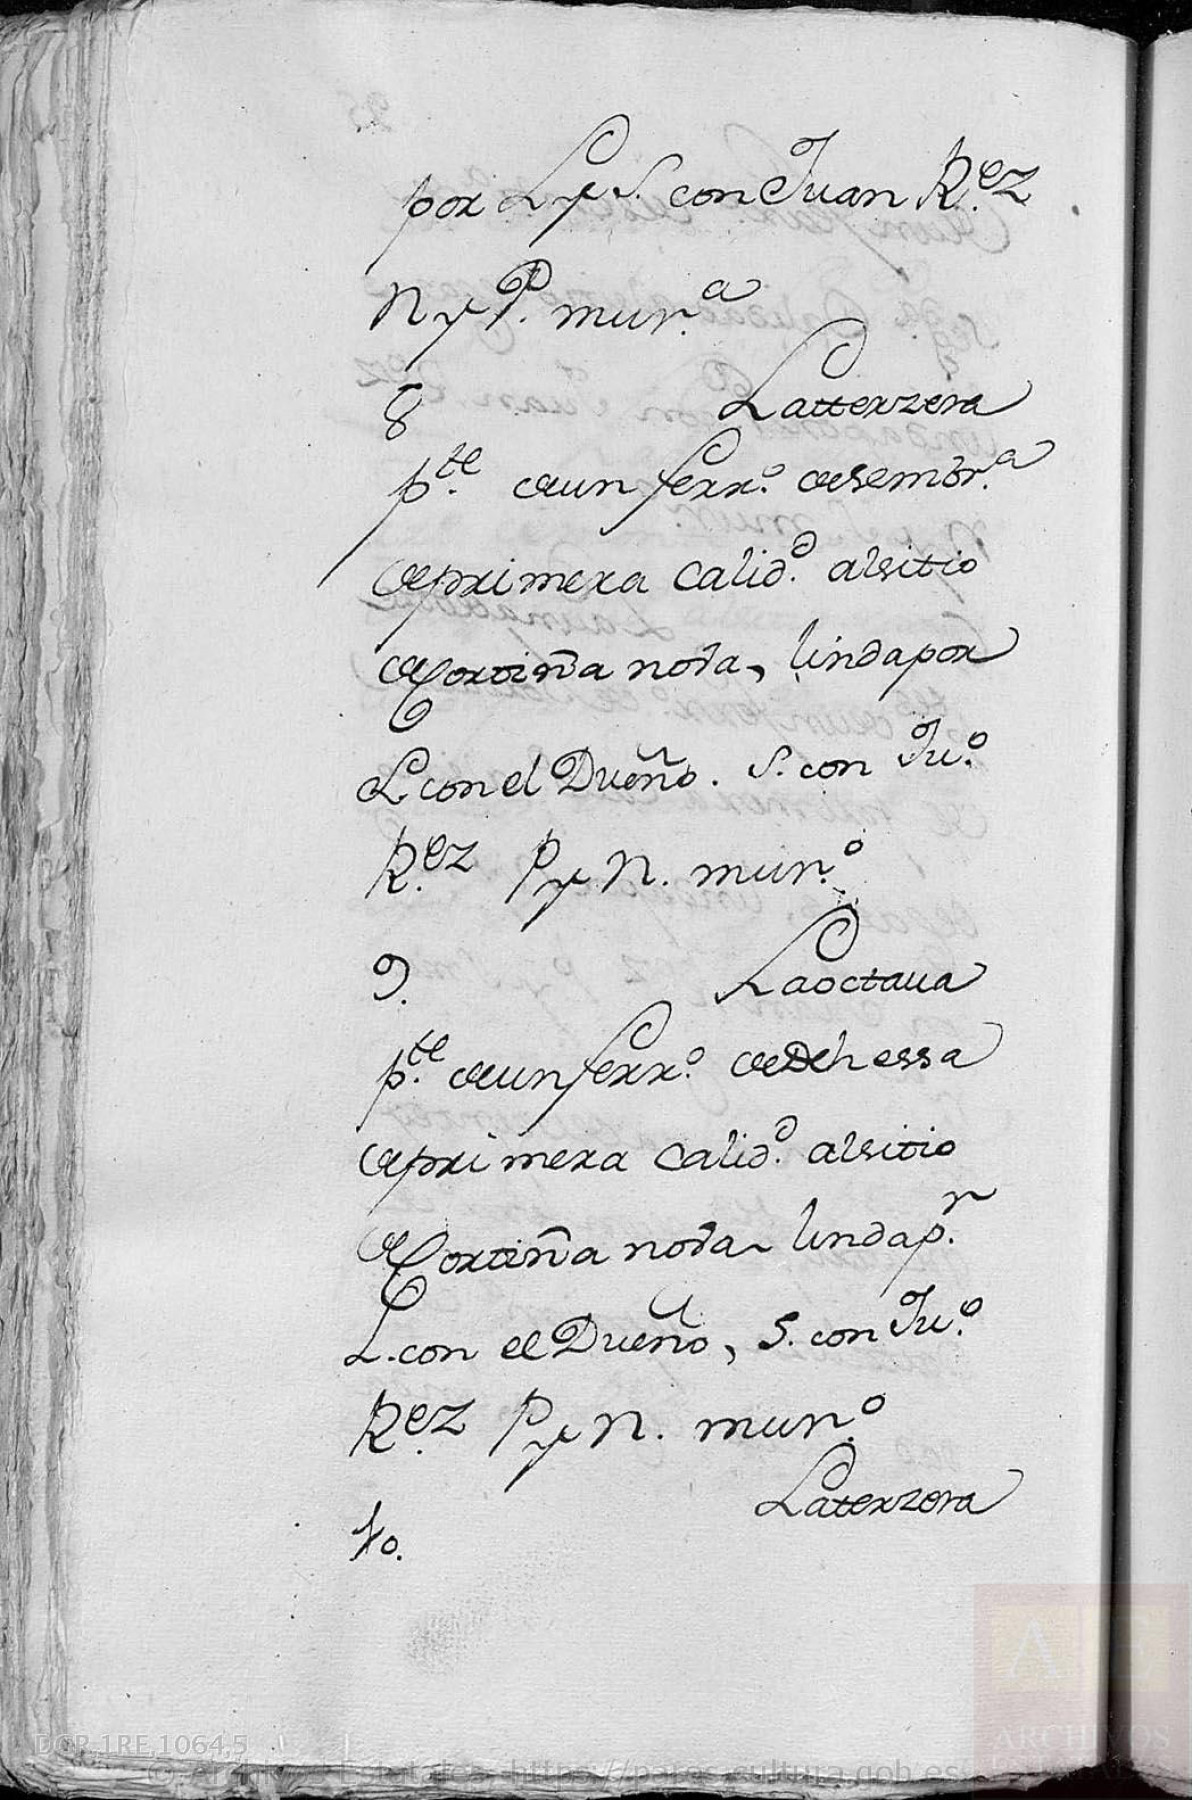 por L y S. con Juan R.ez
N y P. mur.a
8 La tterzera
p.te de un ferr.o de sembr.a
de primera calid.d al sitio
de Cortiña noba, linda por
L. con el Dueño. S. con Ju.o
R.ez P y N. mur.o
9. La octaua
p.te de un ferr.o de Dehessa
de primera calid.d al sitio
de Cortiña noba linda p.r
L. con el Dueño, S. con Ju.o
R.ez P y N. mur.o
10. La terzera
DGR,1RE,1064,5
AE
ARCHIVOS
© Archivos Estatales, https://pares.cultura.gob.es